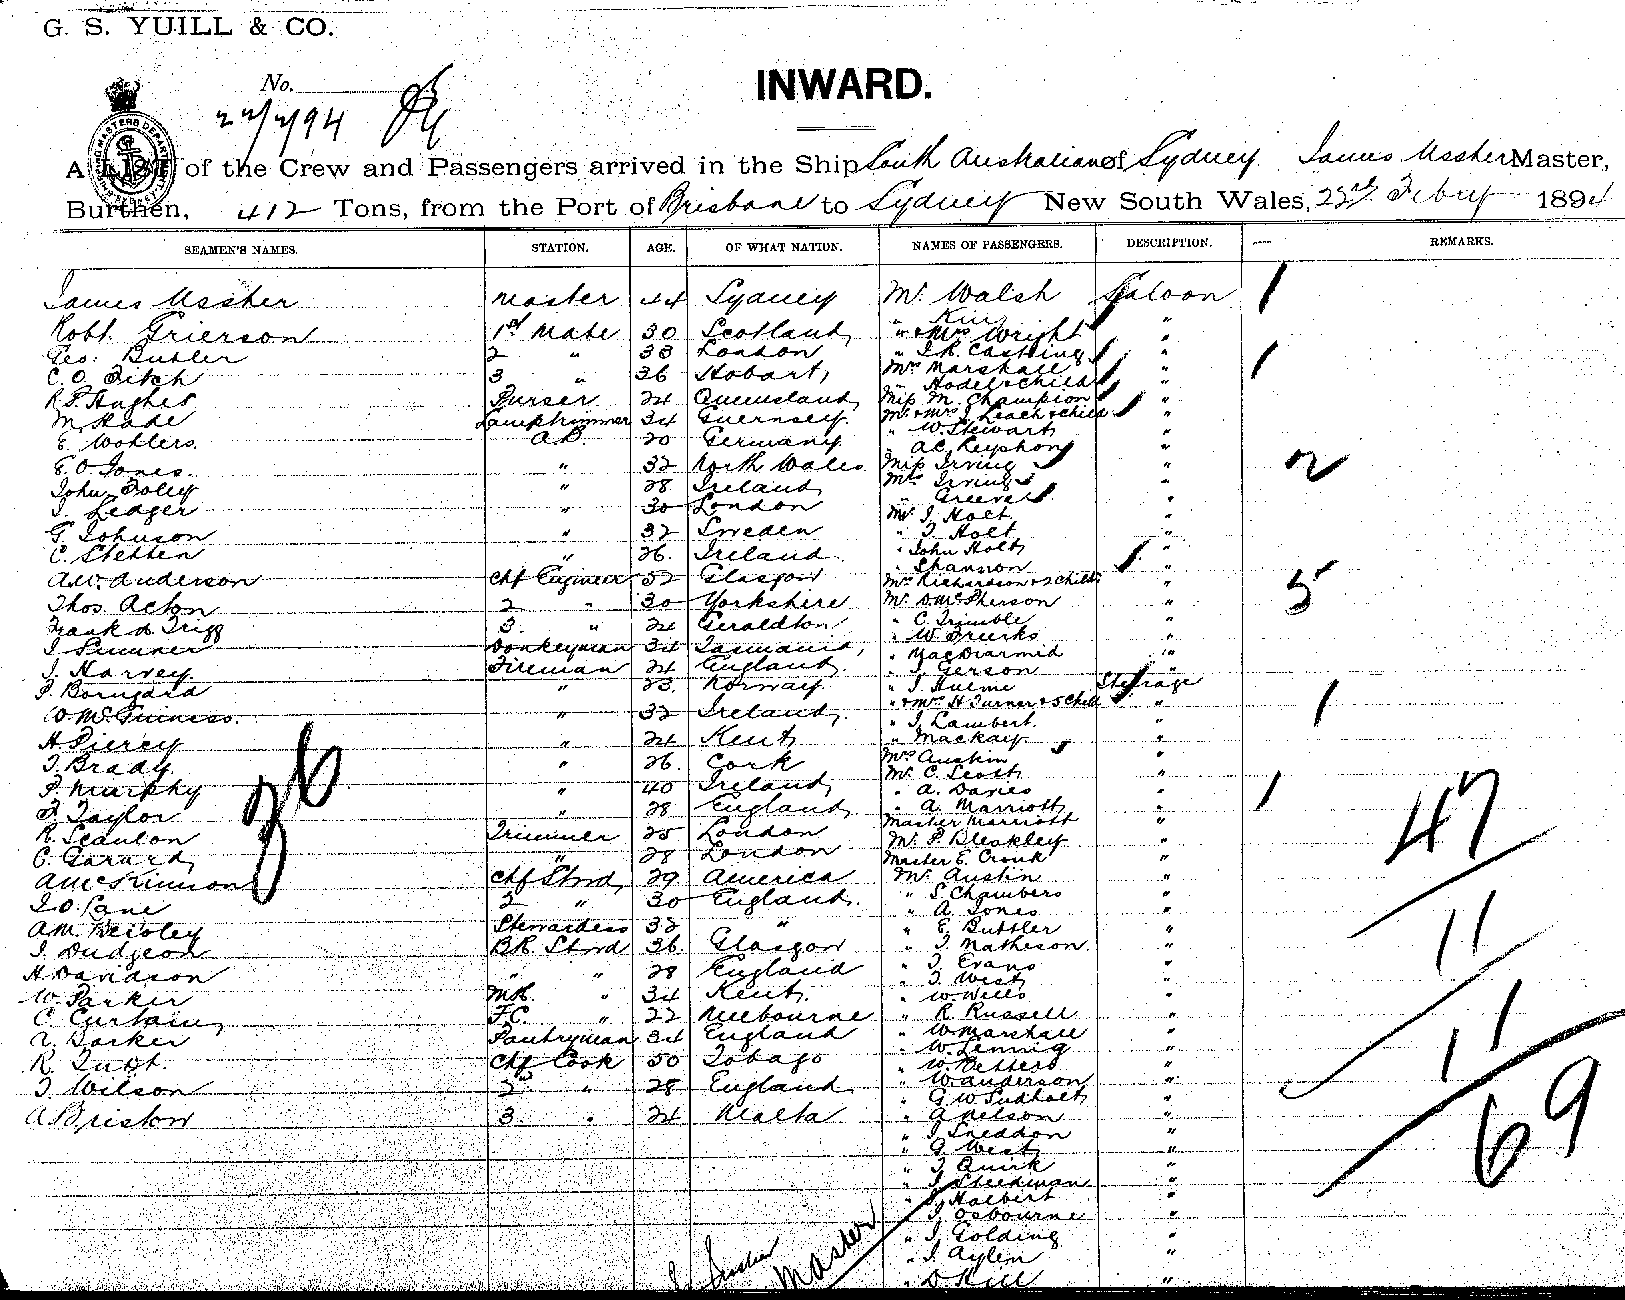 G. S. YUILL & CO.
No.
INWARD.
22/2/94
A LIST of the Crew and Passengers arrived in the Ship South Australian of Sydney James Ussher Master,
Burthen, 412 Tons, from the Port of Brisbane to Sydney New South Wales, 22nd Febry 1894
SEAMEN'S NAMES. STATION. AGE. OF WHAT NATION. NAMES OF PASSENGERS. DESCRIPTION. REMARKS.
James Ussher master 44 Sydney Mr. Walsh Saloon 1
" "
Robt. Grierson 1st Mate 30 Scotland " & Mrs Wright "
Geo. Butler 2 " 33 London " "
C. O. Fitch 3 " 36 Hobart, Mrs Marshall " 1
" Hodel & child "
R. P. Hughes Purser 24 Queensland Miss M. Champion "
Lamptrimmer 34 Guernsey. Mr & Mrs J Leach & child "
E. Wohlers. AB 20 Germany " W. Stewart "
E. O. Jones. " 32 North Wales Miss Irving " 2
John Foley " 28 Ireland Mrs Irving "
J. Ledger " 30 London "
G. Johnson " 32 Sweden Mr. J. Holt "
" J. Holt "
C. Stetten " 26. Ireland " John Holt "
" Shannon
A. W. Anderson Chf Engineer 52 Glasgow Mrs Richardson & 2 Child " 5
Thos. Acton 2 " 30 Yorkshire Mr. McPherson "
Frank A. Trigg 3. " 24 Geraldton " C. Trimble "
J. Sumner Donkeyman 34 Tasmania, " W. "
" MacDiarmid "
J. Harvey Fireman 24 England. " J. Gerson "
" 23. Norway " J. Hulme Steerage
McGuiness. " 32 Ireland, " & Mrs H Turner & 5 Child " 1
" J. Lambert. "
H. Piercy " 24 Kent " Mackay "
J. Brady " 26. Cork Mrs Austin "
P. Murphy " 40 Ireland Mr. C. Scott "
" A. Davies "
F. Taylor " 28 England " A. Marriott " 1
Master Marriott "
R. Scanlon Trimmer 25 London Mr. P. Bleskley "
C. Garard " 28 London Master E. Cronk "
A McKinnon Chf Stwd 29 America Mr. Austin "
36
47
J. O. Lane 2 " 30 England. " S. Chambers "
" A. Jones "
A. M. Beisley Stewardess 32 " " E. Buttler "
J. Dudgeon B.R. Stwd 36. Glasgow " J. Matheson "
11
H Davidson " " 28 England " J. Evans "
" J. West "
W. Parker " 34 Kent. " W. Wells "
C. Curtain F.C. " 22 Melbourne " R. Russell "
A. Barker Pantryman 34 England " W Marshall "
11
R. Tubt. Chf Cook 50 Tobago " W. Lennig "
" W. "
J Wilson 2nd " 28 England " W. Anderson "
" G. W Sudholt "
A Bristow 3 " 24 Malta " A Nelson "
69
" J Sneddon "
" G West "
" J Quirk "
" J Steedman "
" J Halbert "
" J Osbourne "
" J Golding "
" J. Aylen "
Master